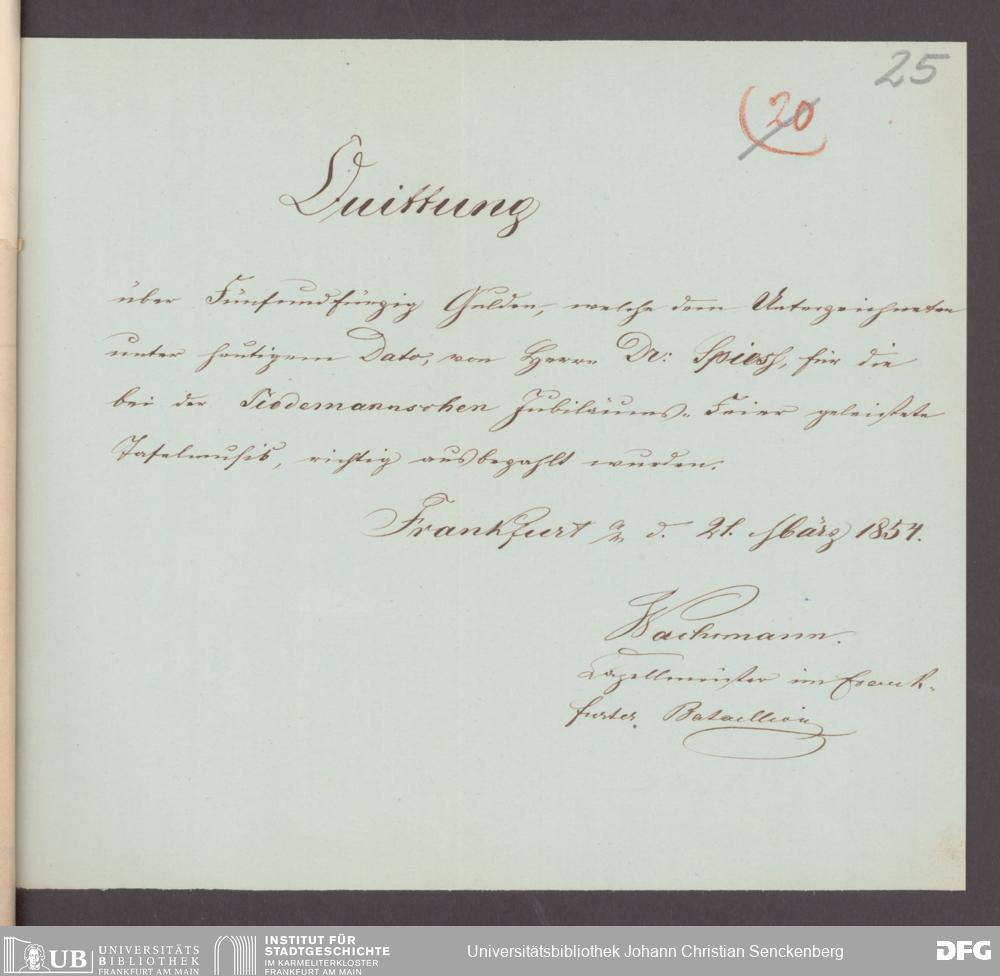 25
20
Quittung
über Fünfundfünzig Gulden, welche dem Unterzeichneten
unter heutigem Dato, von Herrn Dr: Spiess, für die
bei der Tiedemannschen Jubiläums-Feier geleistete
Tafelmusik, richtig ausbezahlt wurden.
Frankfurt a/m d. 21. März 1854.
Wachsmann.
Capellmeister im Frank-
furter Bataillion
UB UNIVERSITÄTS
BIBLIOTHEK
FRANKFURT AM MAIN
INSTITUT FÜR
STADTGESCHICHTE
IM KARMELITERKLOSTER
FRANKFURT AM MAIN
Universitätsbibliothek Johann Christian Senckenberg
DFG